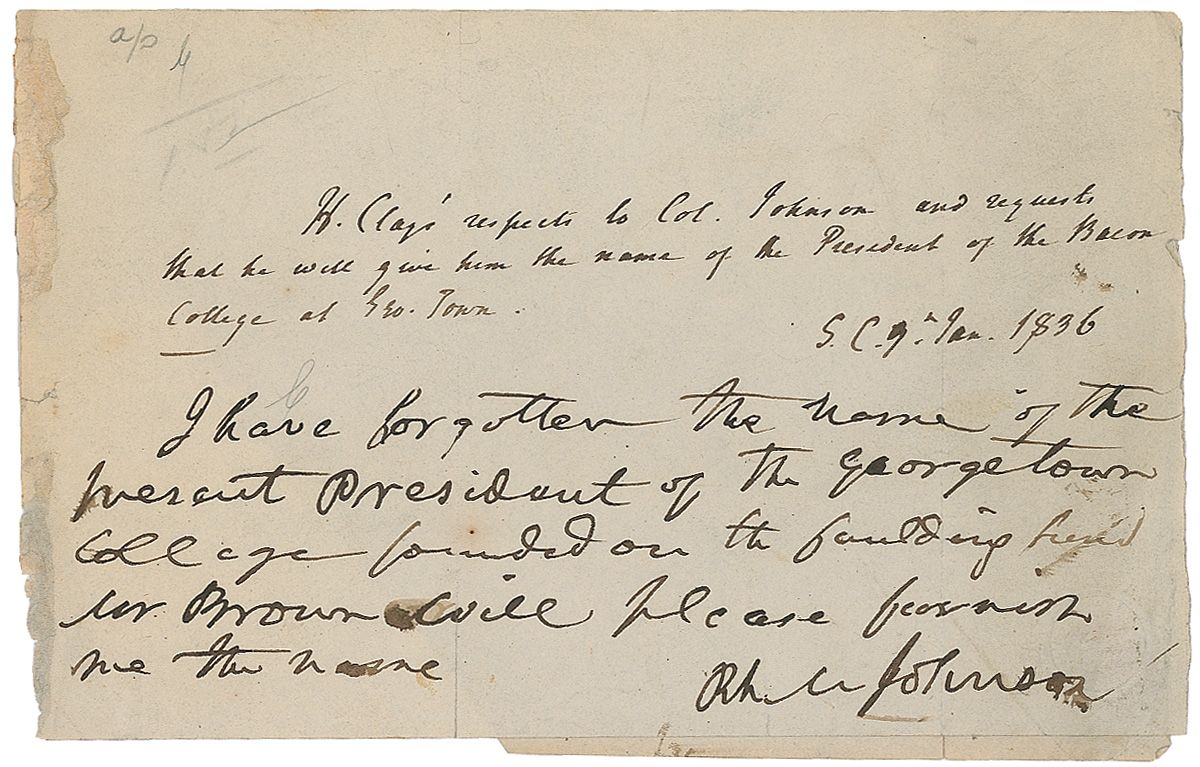 H. Clay's respects to Col. Johnson and requests
that he will give him the name of the President of the Bacon
College at Geo. Town.
S. C. 9th Jan. 1836
I have forgotten the name of the
present President of the Georgetown
College founded on the paulding fund
Mr Brown will please furnish
me the name
Rh M Johnson